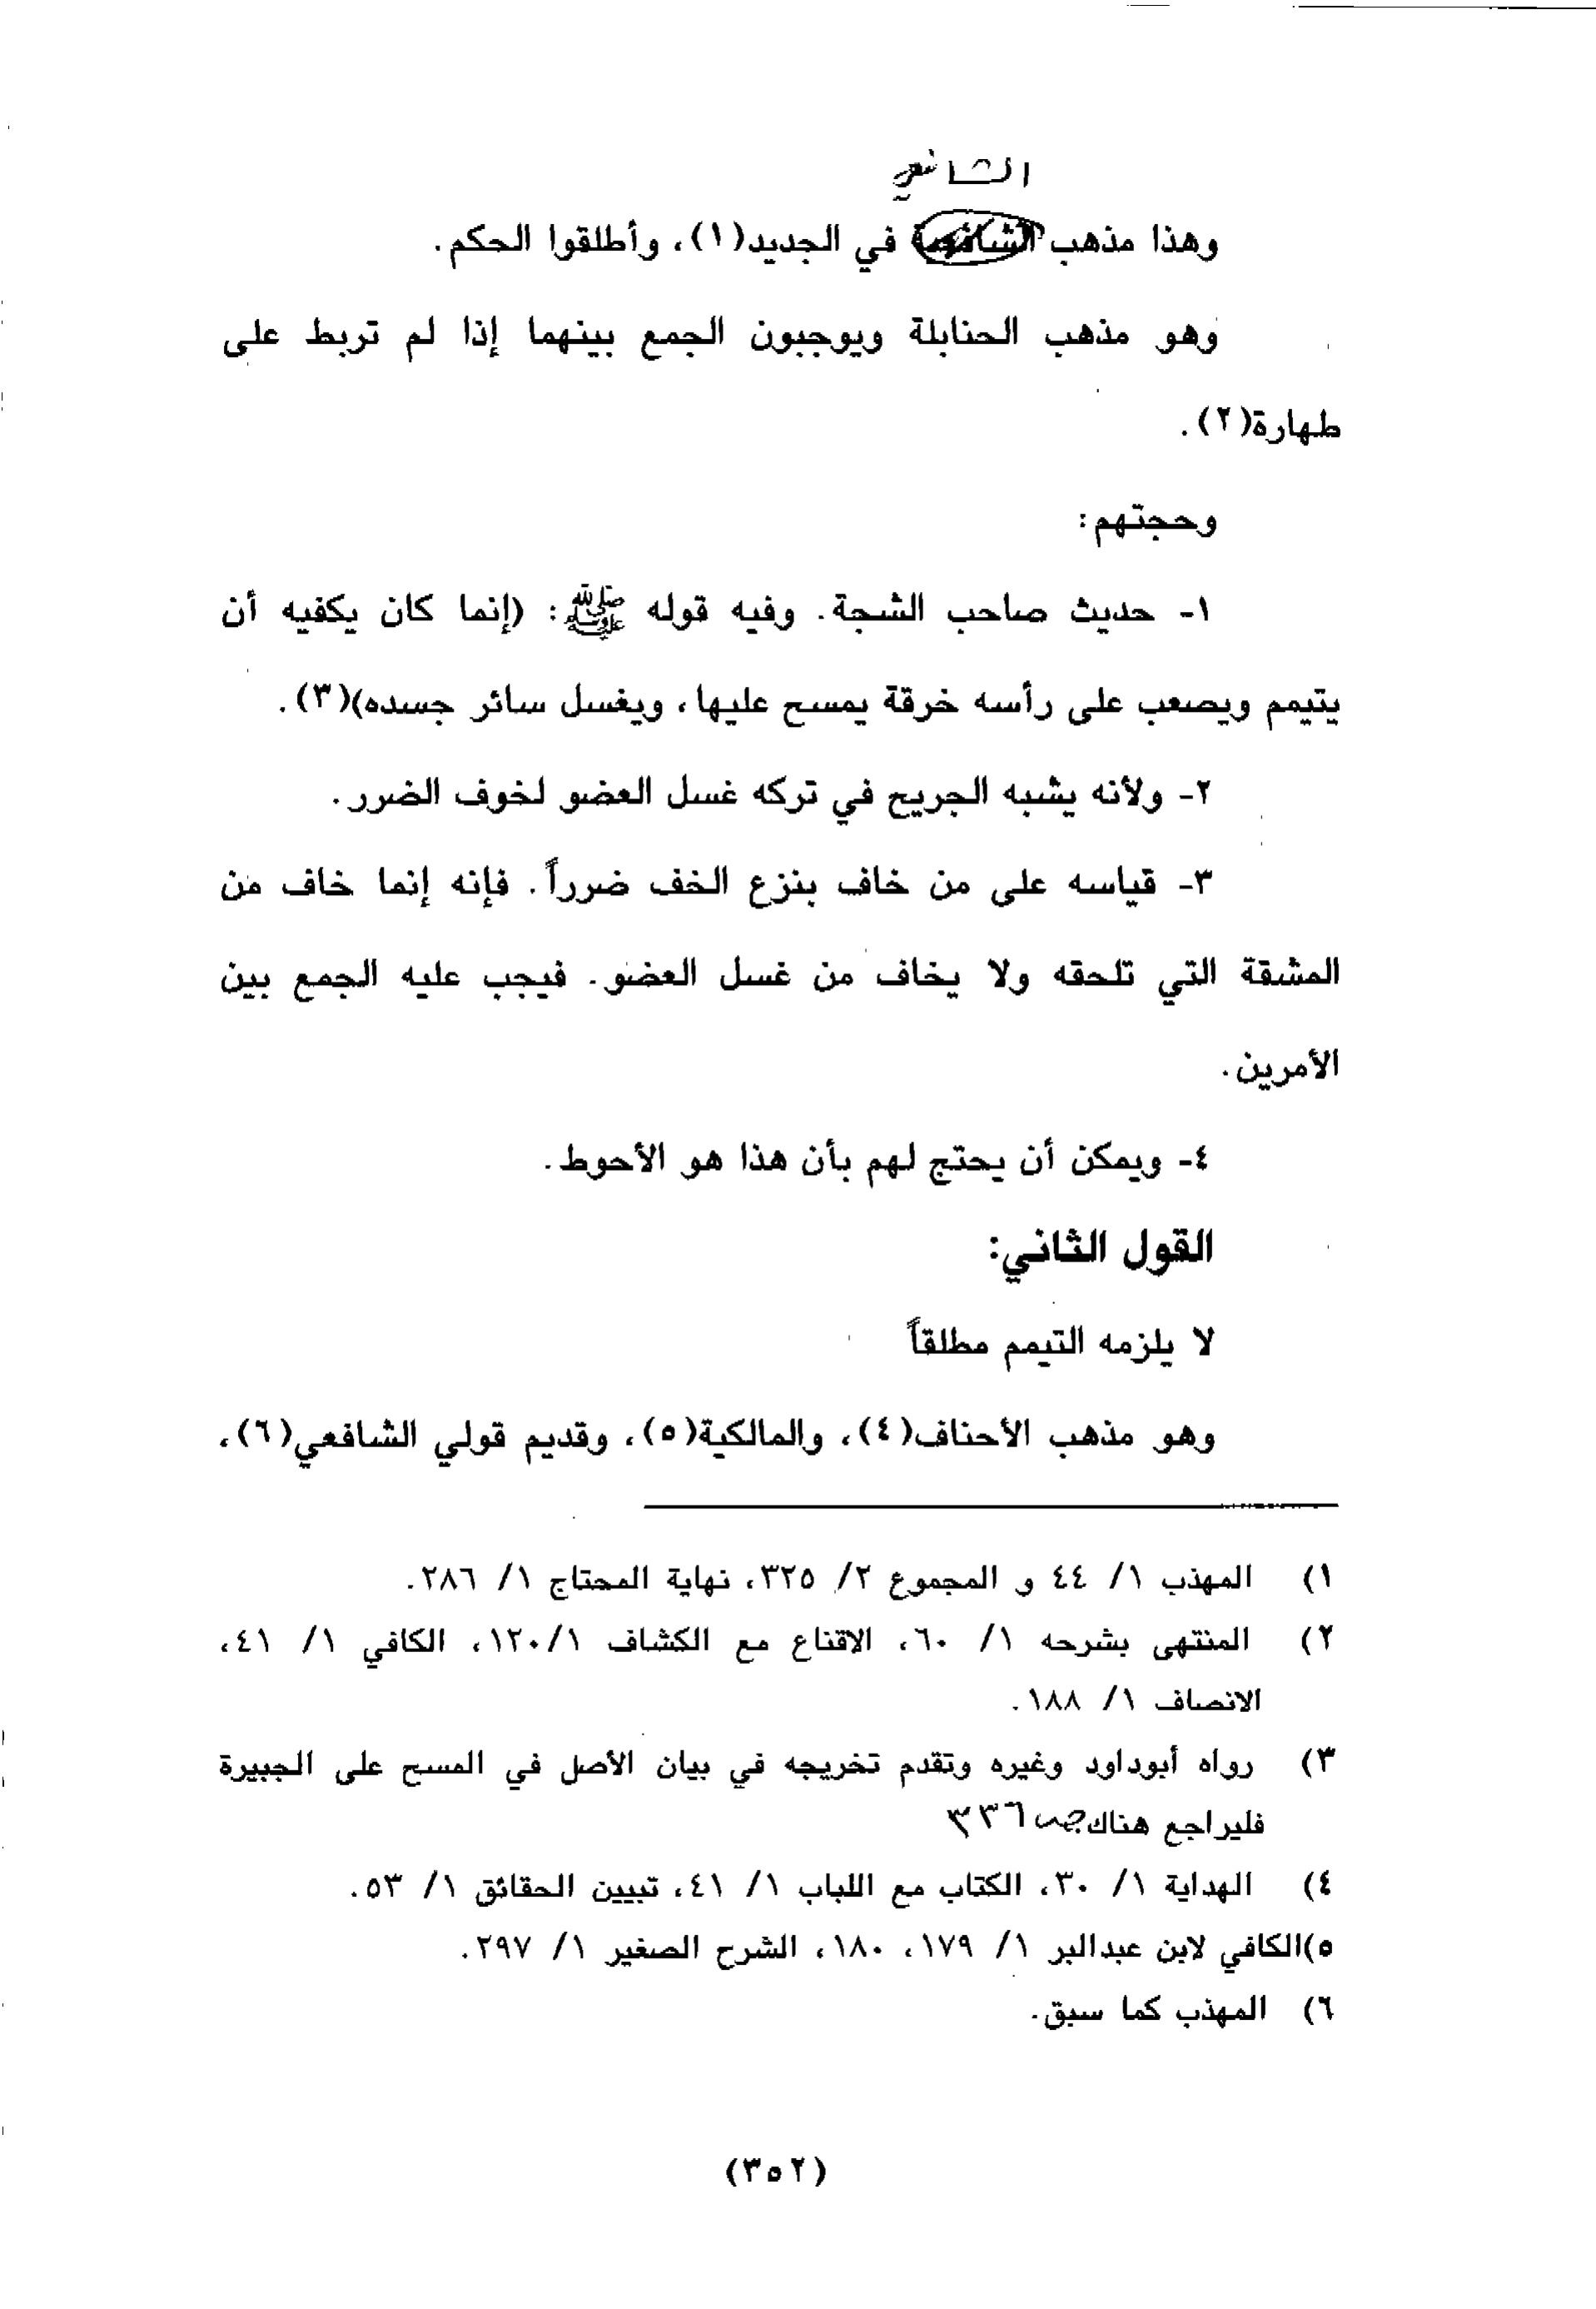 الشافعي
وهذا مذهب الشافعية في الجديد(١)، وأطلقوا الحكم.
وهو مذهب الحنابلة ويوجبون الجمع بينهما إذا لم تربط على
طهارة(٢).
وحجتهم:
١- حديث صاحب الشجة. وفيه قوله ﷺ: (إنما كان يكفيه أن
يتيمم ويصعب على رأسه خرقة يمسح عليها، ويغسل سائر جسده)(٣).
٢- ولأنه يشبه الجريح في تركه غسل العضو لخوف الضرر.
٣- قياسه على من خاف بنزع الخف ضرراً. فإنه إنما خاف من
المشقة التي تلحقه ولا يخاف من غسل العضو. فيجب عليه الجمع بين
الأمرين.
٤- ويمكن أن يحتج لهم بأن هذا هو الأحوط.
القول الثاني:
لا يلزمه التيمم مطلقاً
وهو مذهب الأحناف(٤)، والمالكية(٥)، وقديم قولي الشافعي(٦)،
١) المهذب ١/ ٤٤ و المجموع ٢/ ٣٢٥، نهاية المحتاج ١/ ٢٨٦.
٢) المنتهى بشرحه ١/ ٦٠، الاقناع مع الكشاف ١/١٢٠، الكافي ١/ ٤١،
الانصاف ١/ ١٨٨.
٣) رواه أبوداود وغيره وتقدم تخريجه في بيان الأصل في المسح على الجبيرة
فليراجع هناك ص ٣٣٦
٤) الهداية ١/ ٣٠، الكتاب مع اللباب ١/ ٤١، تبيين الحقائق ١/ ٥٣.
٥)الكافي لابن عبدالبر ١/ ١٧٩، ١٨٠، الشرح الصغير ١/ ٢٩٧.
٦) المهذب كما سبق.
(٣٥٢)